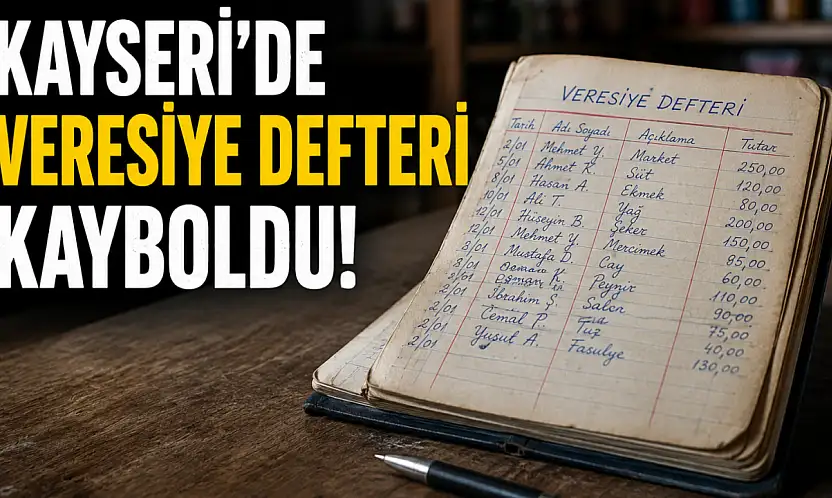 KAYSERİ'DE
VERESİYE DEFTERİ
KAYBOLDU!
VERESİYE DEFTERİ
Tarih Adı Soyadı Açıklama Tutar
2/01 Mehmet Y. Market 250,00
5/01 Ahmet K. Süt 120,00
8/01 Hasan A. Ekmek 80,00
10/01 Ali T. Yağ 200,00
12/01 Hüseyin B. Şeker 150,00
12/01 Mehmet Y. Mercimek 85,00
3/01 Mustafa D. Çay 60,00
8/01 Osman Peynir 110,00
2/01 90,00
2/01 İbrahim Ş. Tuz 75,00
2/01 Cemal P. Fasulye 40,00
2/01 Yusuf A. 130,00